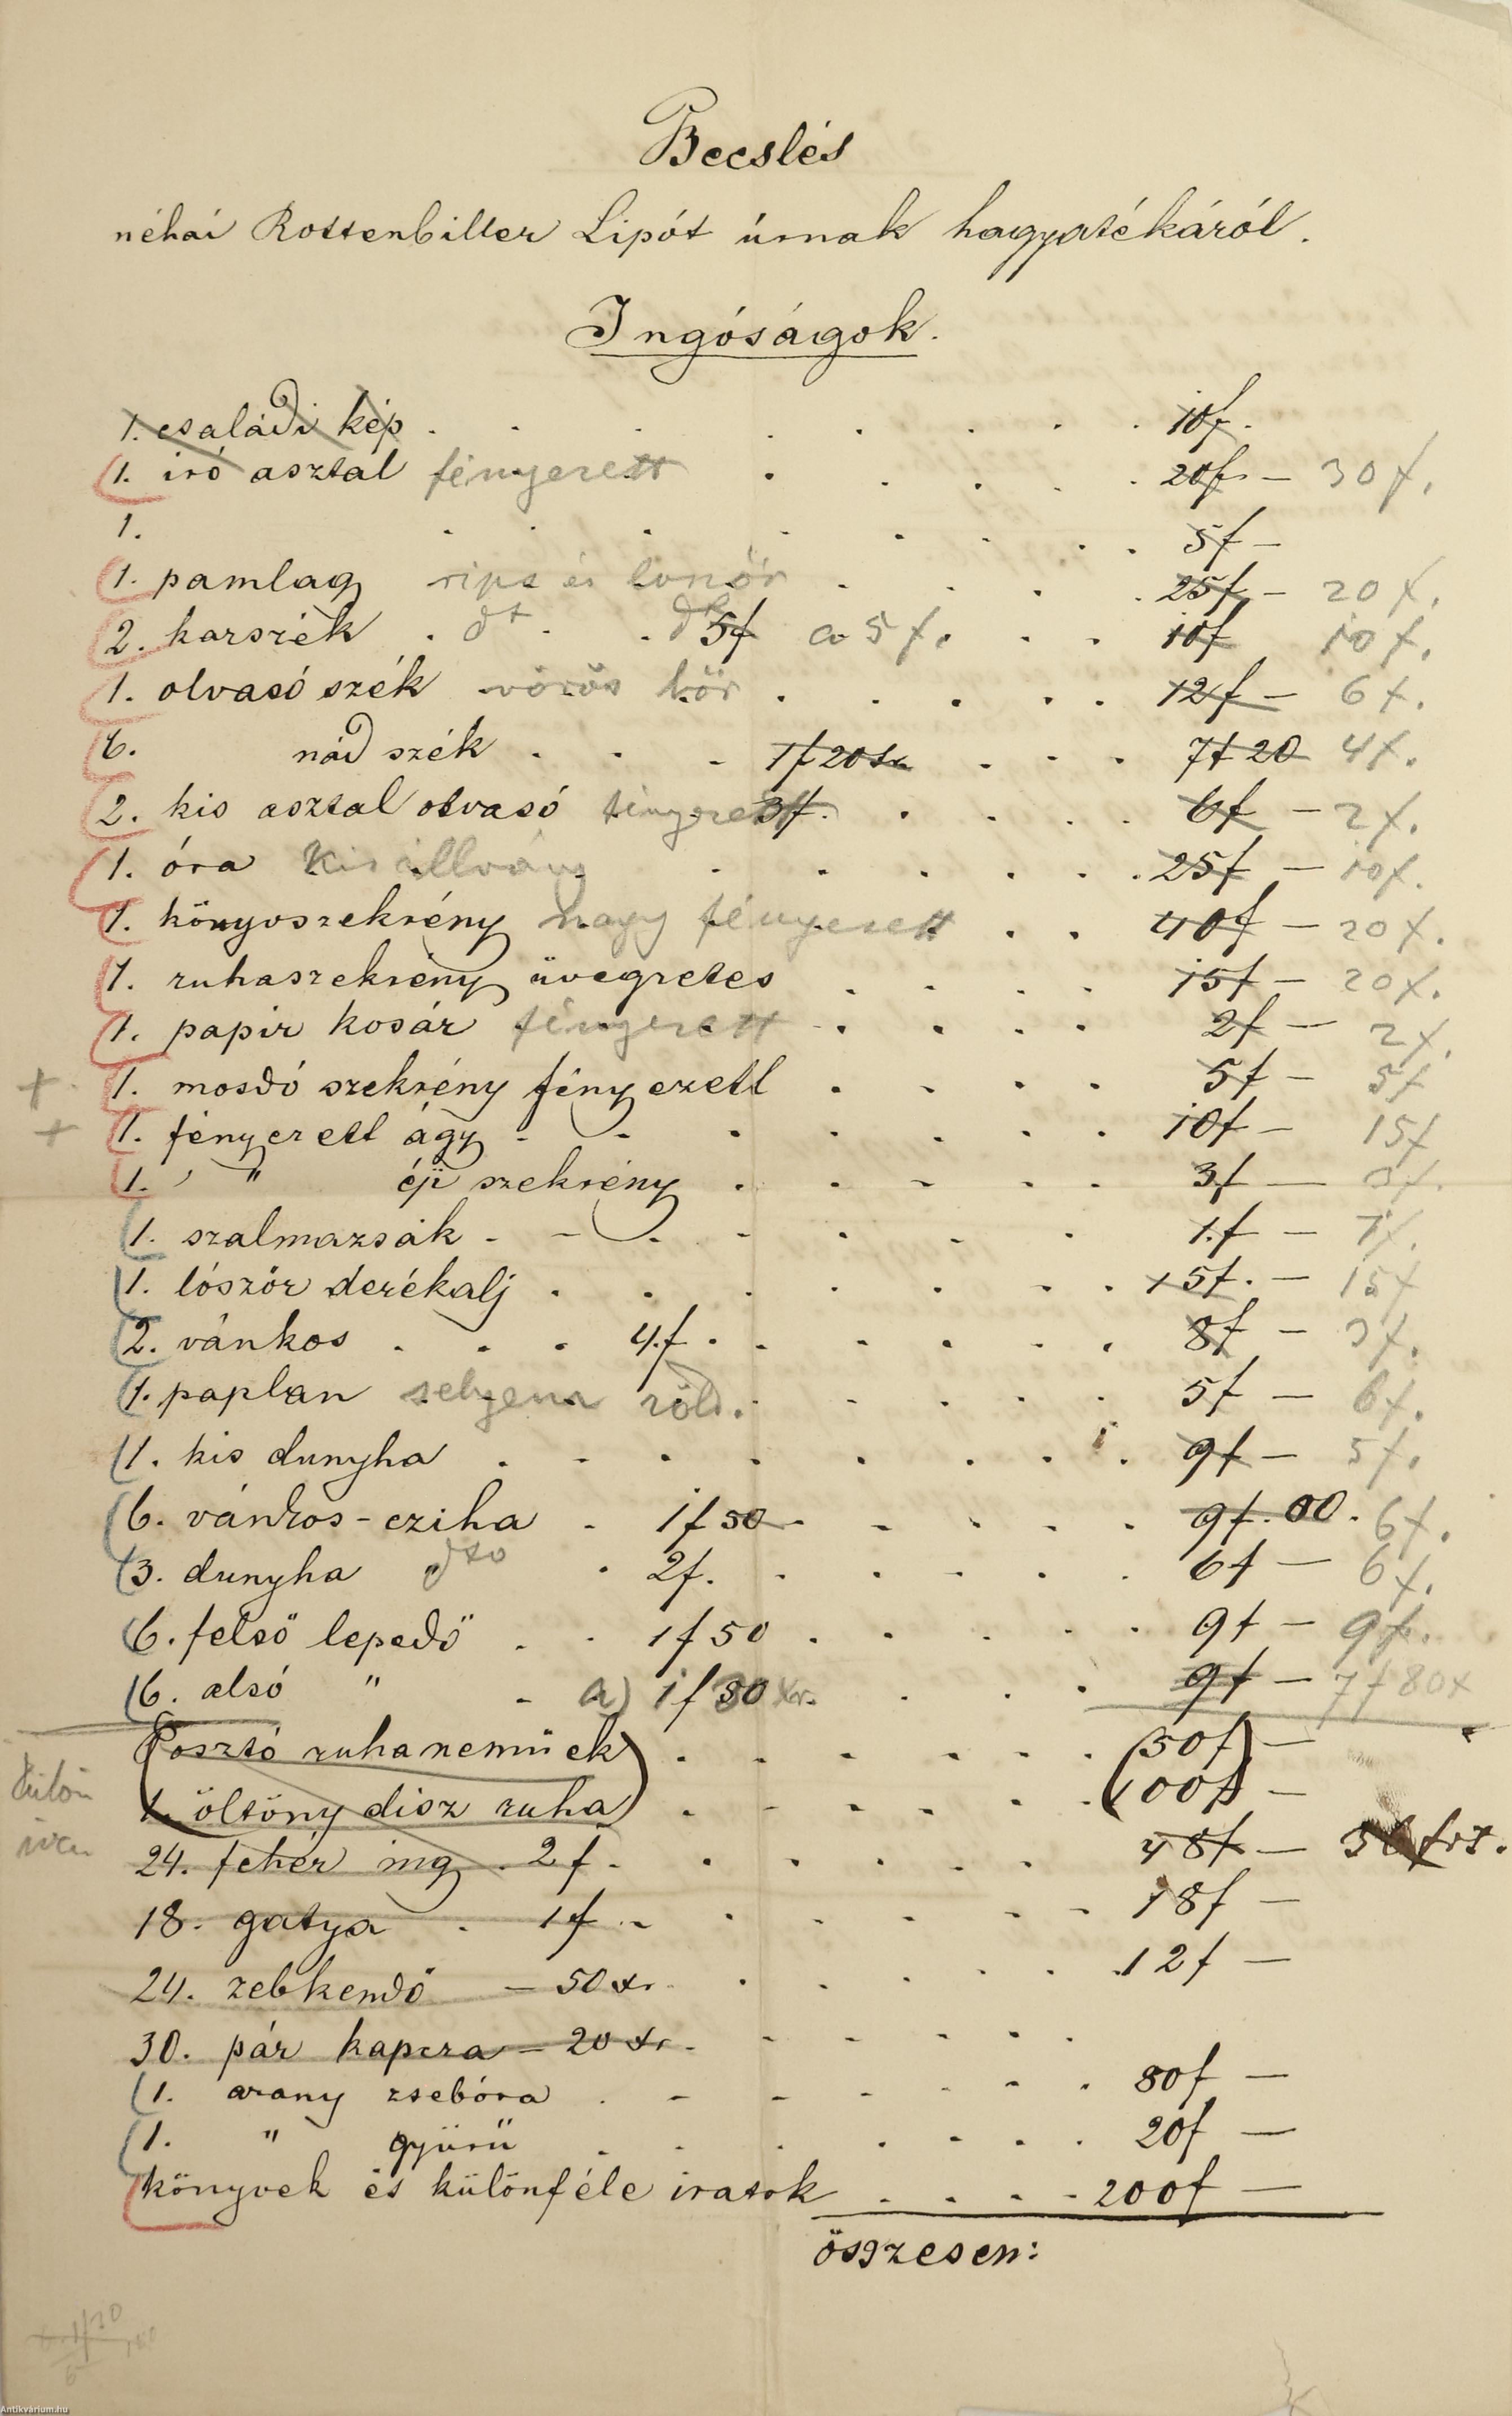 Becslés
néhai Rottenbiller Lipót úrnak hagyatékáról.
Ingóságok.
1. családi kép . . . . . . . . 10f.
1. iró asztal fényezett . . . . . 20f. — 30f.
1. . . . . . . . . 5f —
1. pamlag rips és lószőr . . . . 25f — 20f.
2. karszék . dt . . dt 5f a 5f. . . 10f 10f.
1. olvasó szék vörös bőr . . . . . 12f — 6f.
6. nád szék . . . 1f 20 xr . . . 7f 20 4f.
2. kis asztal olvasó fényezett 3f. . . . . 6f — 2f.
1. óra Kis állvány . . . . . . 25f — 10f.
1. könyvszekrény nagy fényezett . . 40f — 20f.
1. ruhaszekrény üvegzetes . . . . 15f — 20f.
1. papir kosár fényezett . . . . 2f — 2f.
+ 1. mosdó szekrény fényezett . . . . 5f — 5f
+ 1. fényezett ágy . . . . . . . 10f — 15f
1. " éji szekrény . . . . . 3f —
1. szalmazsák - - . . . . . 1.f — 1f.
1. lószőr derékalj . . . . . . . 15f. — 15f
2. vánkos . . . 4.f . . . . . . 8f — 3f.
1. paplan selyem zöld. . . . . . 5f — 6f.
1. kis dunyha . . . . . . . . 9f — 5f.
6. vánkos-cziha . 1f 50 . . . . . 9f. 00. 6f.
3. dunyha dto . 2f. . . . . . 6f — 6f.
6. felső lepedő . . 1f 50 . . . . . 9f — 9f.
6. alsó " - a) 1f 30 xr. . . . 9f — 7f 80x
Posztó ruhanemüek . . . . . . 50f —
1. öltöny disz ruha . . . . . . 100f —
külön
24. fehér ing . 2f. . . . . . 48f — frt.
18. gatya . 1f . . . . . . 18f —
24. zebkendő — 50 xr. . . . . . 12f —
30. pár kapcza — 20 xr. . . . . .
1. arany zsebóra . . . . . . . 80f —
1. " gyürü . . . . . . . 20f —
könyvek és különféle iratok . . . . 200f —
összesen:
Antikvárium.hu